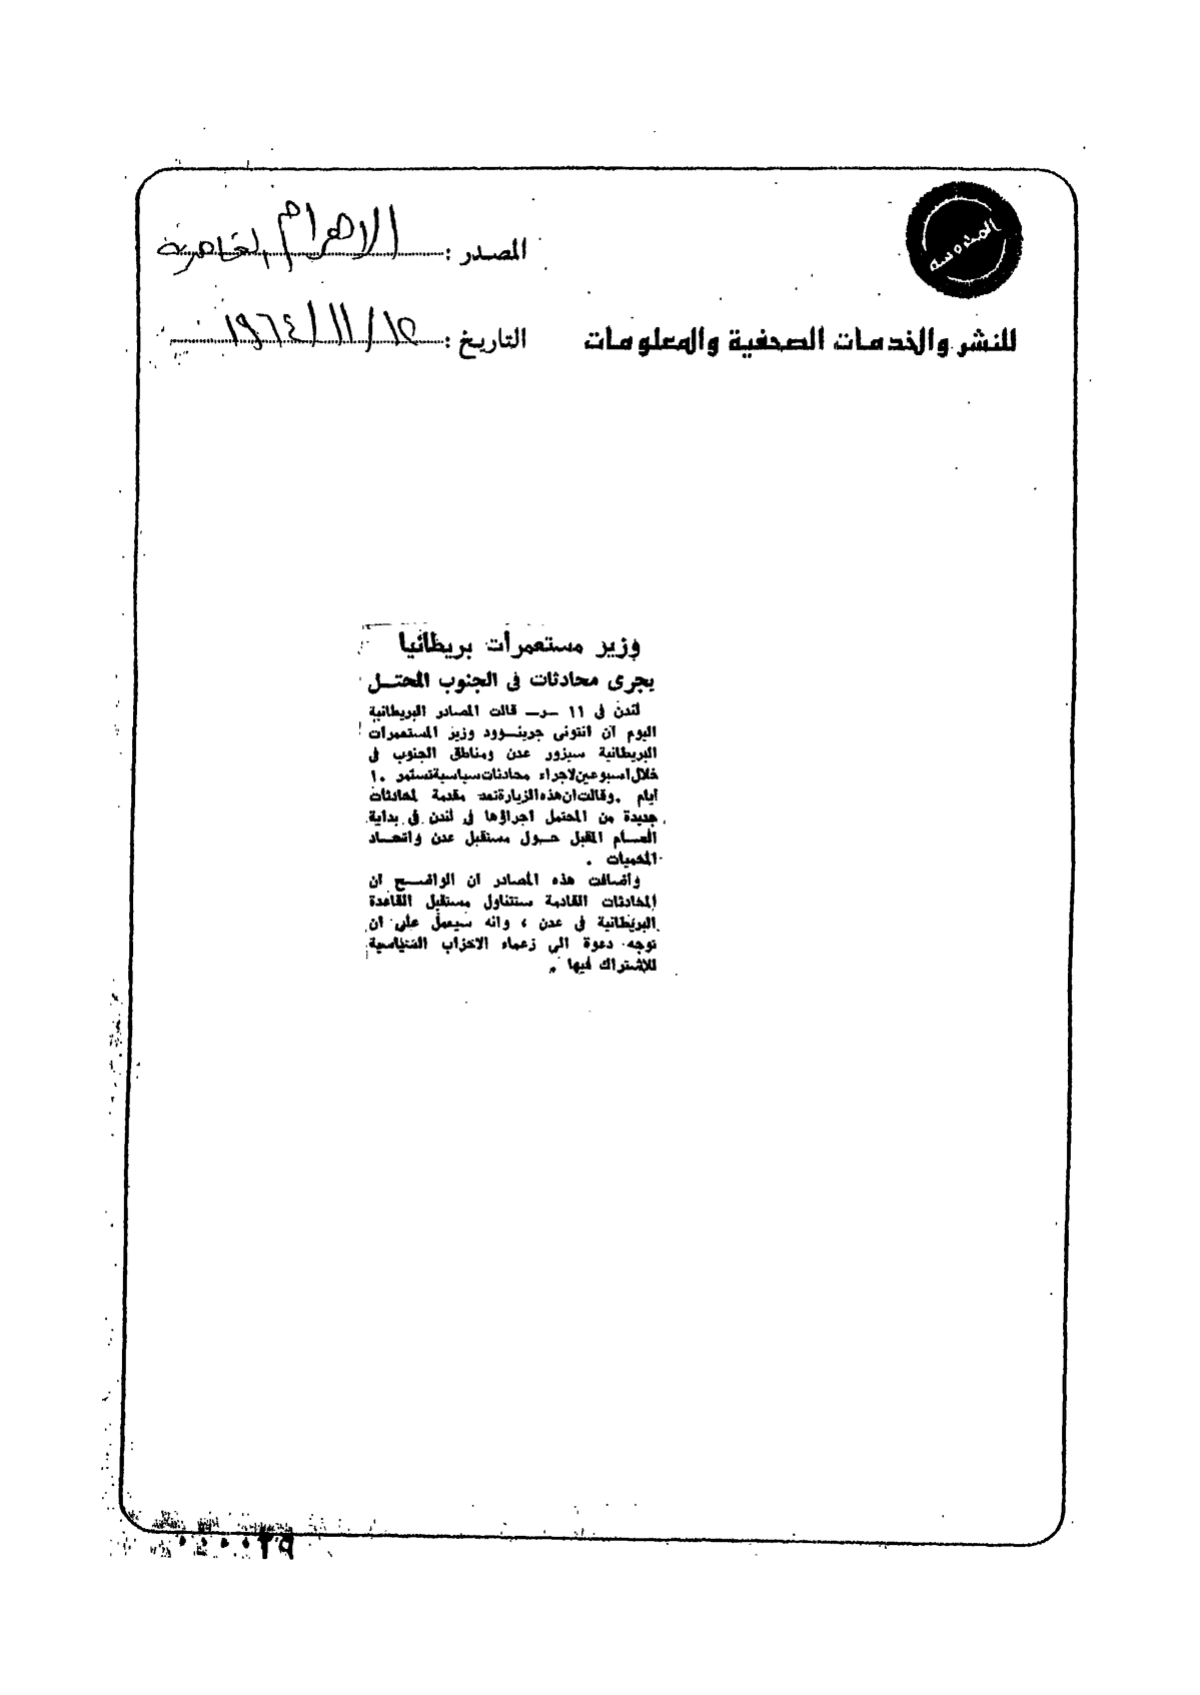 المصدر : الاهرام القاهرية
التاريخ : ١٩٦٤/١١/١٢
للنشر والخدمات الصحفية والمعلومات
وزير مستعمرات بريطانيا
يجرى محادثات فى الجنوب المحتـــل
لندن فى ١١ ــ ر ــ قالت المصادر البريطانية
اليوم ان انتونى جرينـــوود وزير المستعمرات
البريطانية سيزور عدن ومناطق الجنوب فى
خلال اسبوعين لاجراء محادثات سياسية تستمر ١٠
ايام . وقالت ان هذه الزيارة تعد مقدمة لمحادثات
جديدة من المحتمل اجراؤها فى لندن فى بداية
العــام المقبل حــول مستقبل عدن واتحــاد
المحميات .
وأضافت هذه المصادر ان الواضـــح ان
المحادثات القادمة ستتناول مستقبل القاعدة
البريطانية فى عدن ، وانه سيعمل على ان
توجه دعوة الى زعماء الاحزاب السياسية
للاشتراك فيها .